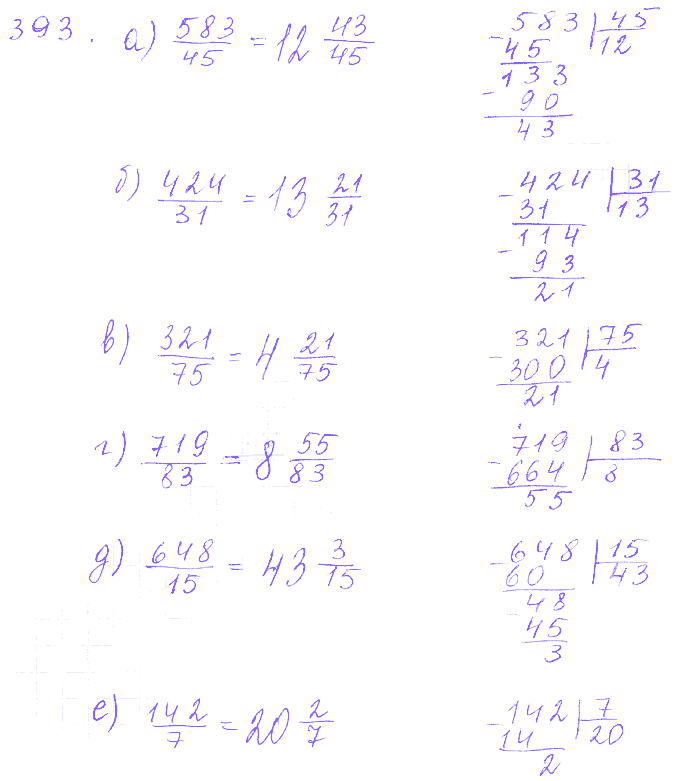 393. а) 583/45 = 12 43/45
583 | 45
- 45 12
133
- 90
43
б) 424/31 = 13 21/31
- 424 | 31
31 13
114
- 93
21
в) 321/75 = 4 21/75
- 321 | 75
300 4
21
г) 719/83 = 8 55/83
719 | 83
- 664 8
55
д) 648/15 = 43 3/15
- 648 | 15
60 43
48
- 45
3
е) 142/7 = 20 2/7
- 142 | 7
14 20
2